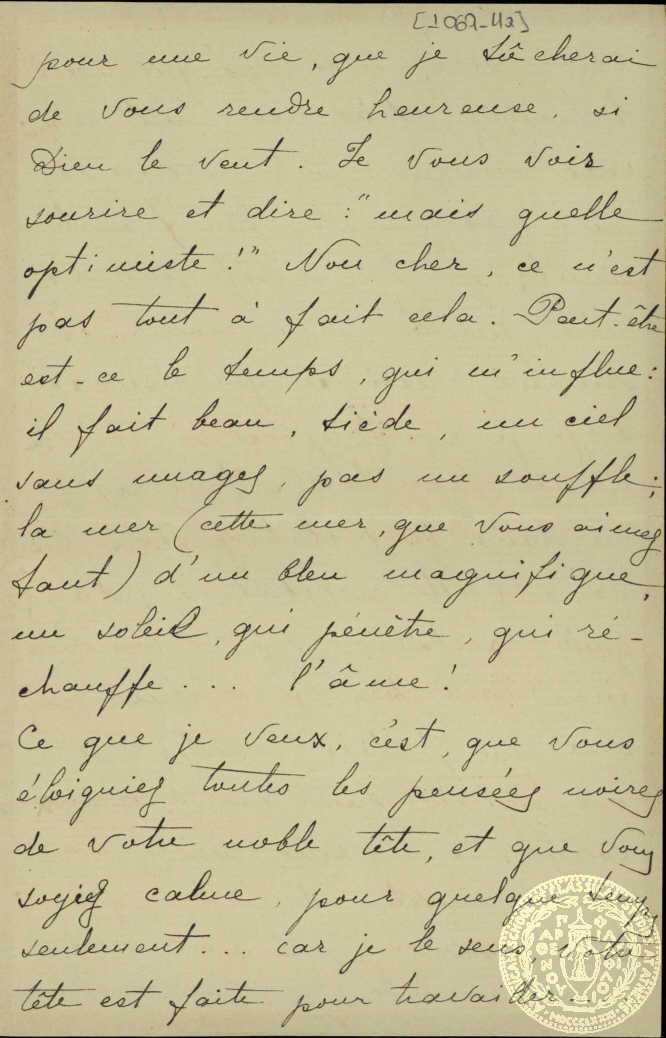 [1067-42]
pour une vie, que je tâcherai
de vous rendre heureuse, si
Dieu le veut. Je vous vois
sourire et dire : "mais quelle
optimiste!" Non cher, ce n'est
pas tout à fait cela. Peut-être
est-ce le temps, qui m'influe:
il fait beau, tiède, un ciel
sans nuages, pas un souffle;
la mer (cette mer, que vous aimez
tant) d'un bleu magnifique,
un soleil, qui pénètre, qui ré-
chauffe ... l'âme!
Ce que je veux, c'est, que vous
éloigniez toutes les pensées noires
de votre noble tête, et que vous
soyiez calme, pour quelque temps
seulement... car je le sens, votre
tête est faite pour travailler...